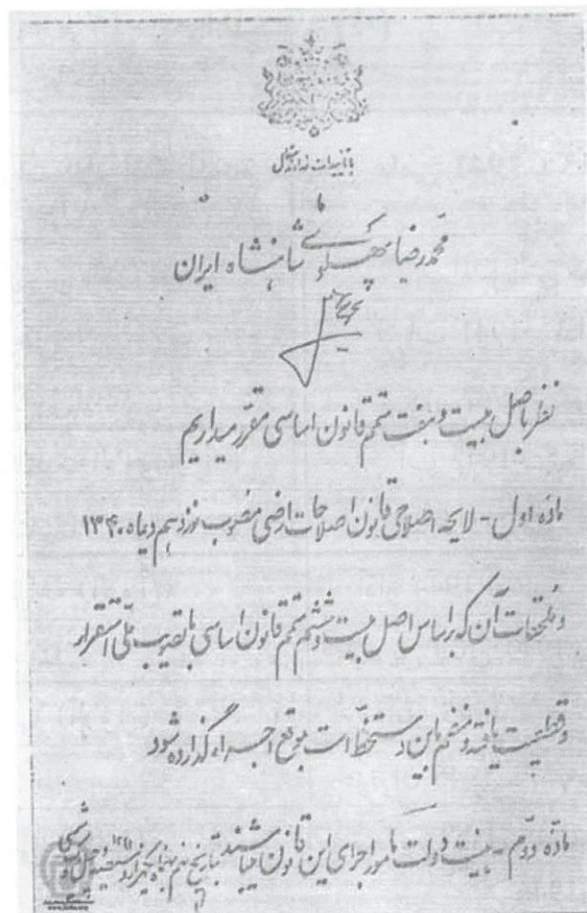 با تأییدات خداوند متعال
ما
محمدرضا پهلوی شاهنشاه ایران
نظر باصل بیست و هفت متمم قانون اساسی مقرر میداریم
ماده اول - لایحه اصلاحی قانون اصلاحات ارضی مصوب نوزدهم دیماه ۱۳۴۰
و ملحقات آن که براساس اصل بیست و ششم متمم قانون اساسی با تصویب ملی استقرار
و قطعیت یافته و منضم باین دستخط است بموقع اجراء گذارده شود
ماده دوم - هیئت دولت مامور اجرای این قانون میباشند بتاریخ نهم بهمن یکهزار و سیصد و چهل و